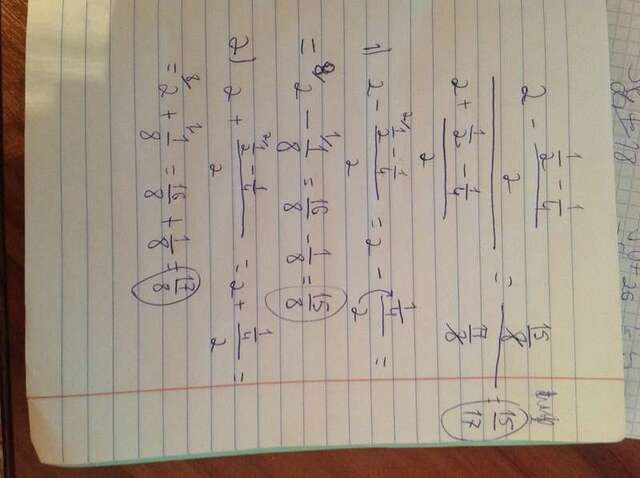 (2 - (1/2 - 1/4)/2) / (2 + (1/2 - 1/4)/2) = (15/8) / (17/8) = 15/17
1) 2 - (1/2 - 1/4)/2 = 2 - (1/4)/2 =
= 2 - 1/8 = 16/8 - 1/8 = 15/8
2) 2 + (1/2 - 1/4)/2 = 2 + (1/4)/2 =
= 2 + 1/8 = 16/8 + 1/8 = 17/8